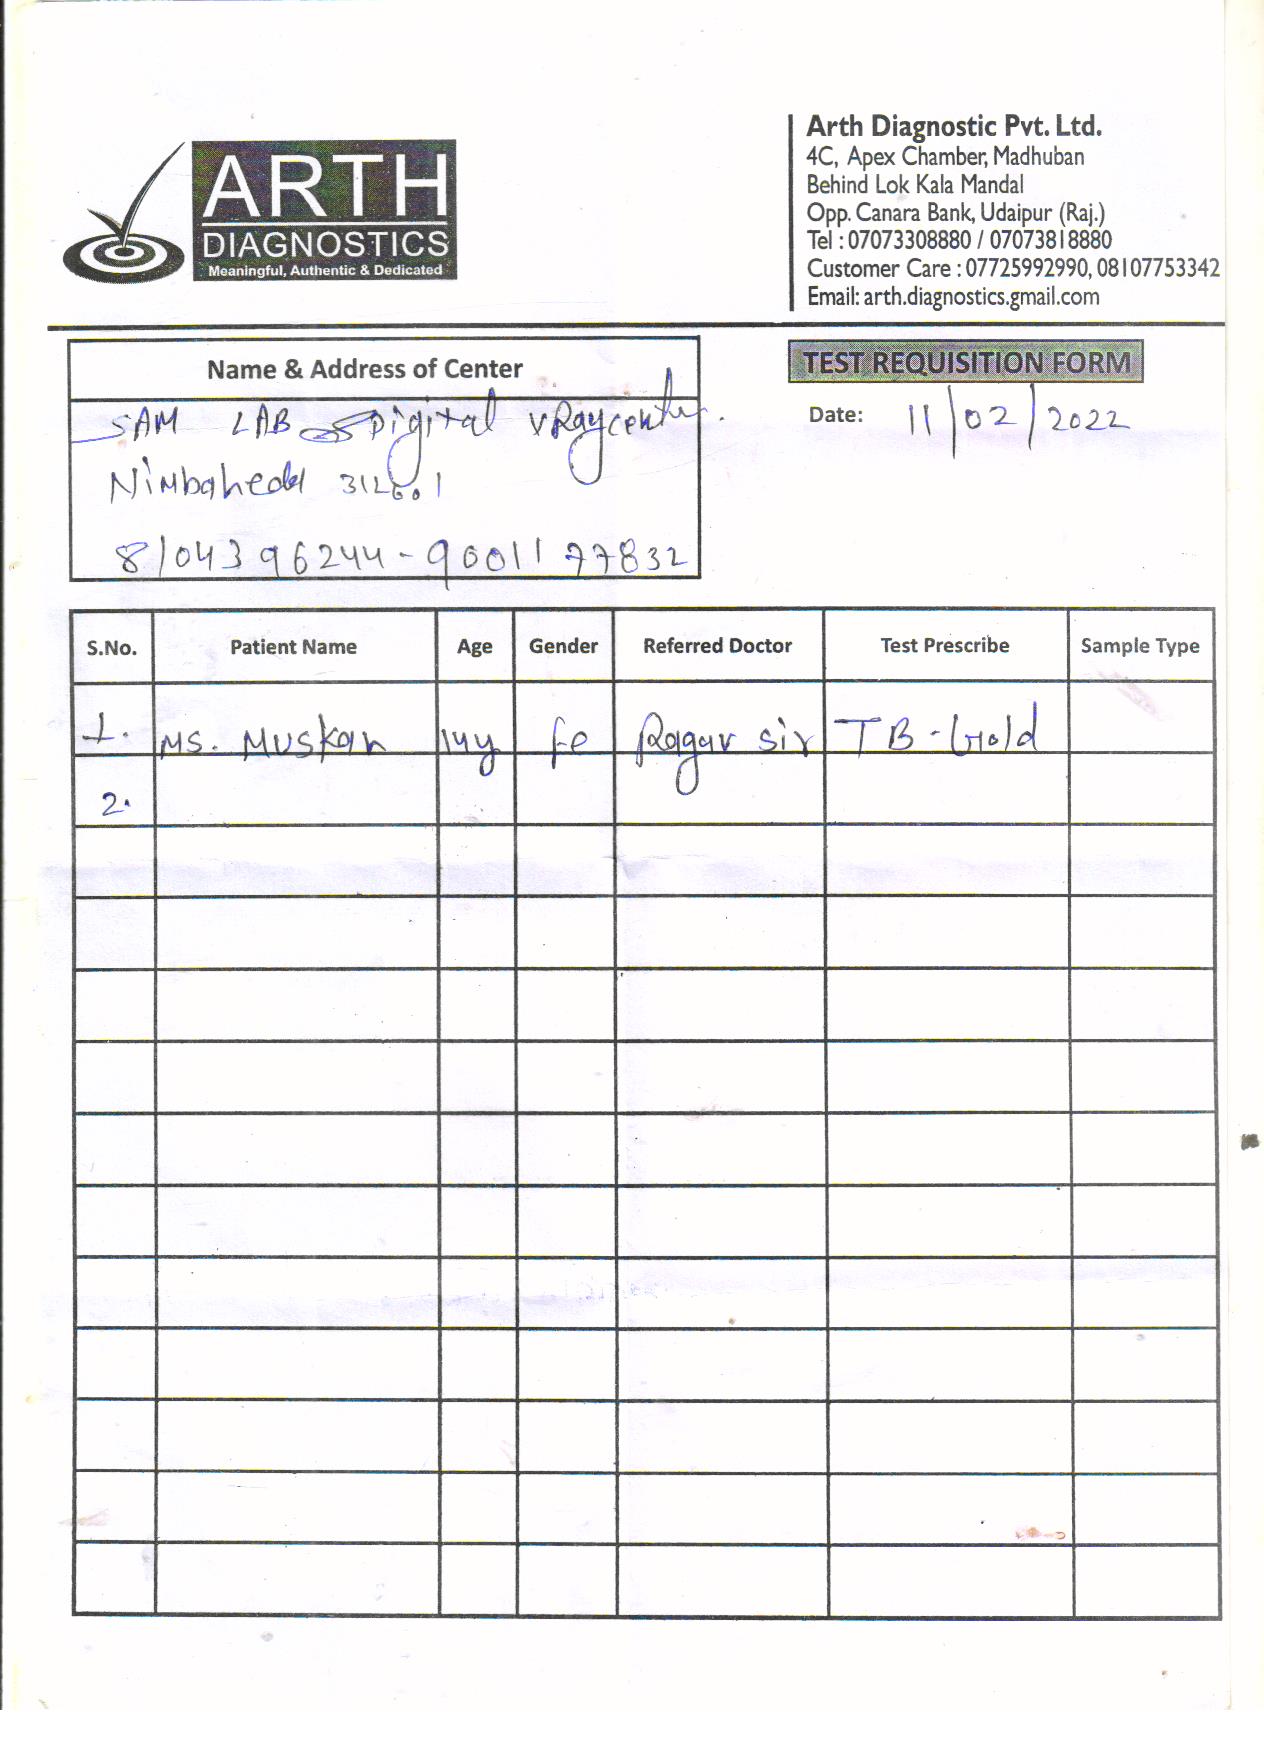 ARTH
DIAGNOSTICS
Meaningful, Authentic & Dedicated
Arth Diagnostic Pvt. Ltd.
4C, Apex Chamber, Madhuban
Behind Lok Kala Mandal
Opp. Canara Bank, Udaipur (Raj.)
Tel : 07073308880 / 07073818880
Customer Care : 07725992990, 08107753342
Email: arth.diagnostics.gmail.com
Name & Address of Center
SAM LAB Digital
312601
8104396244 - 9001177832
TEST REQUISITION FORM
Date: 11/02/2022
S.No. Patient Name Age Gender Referred Doctor Test Prescribe Sample Type
1. MS. Muskan 14y fe sir TB-Gold
2.